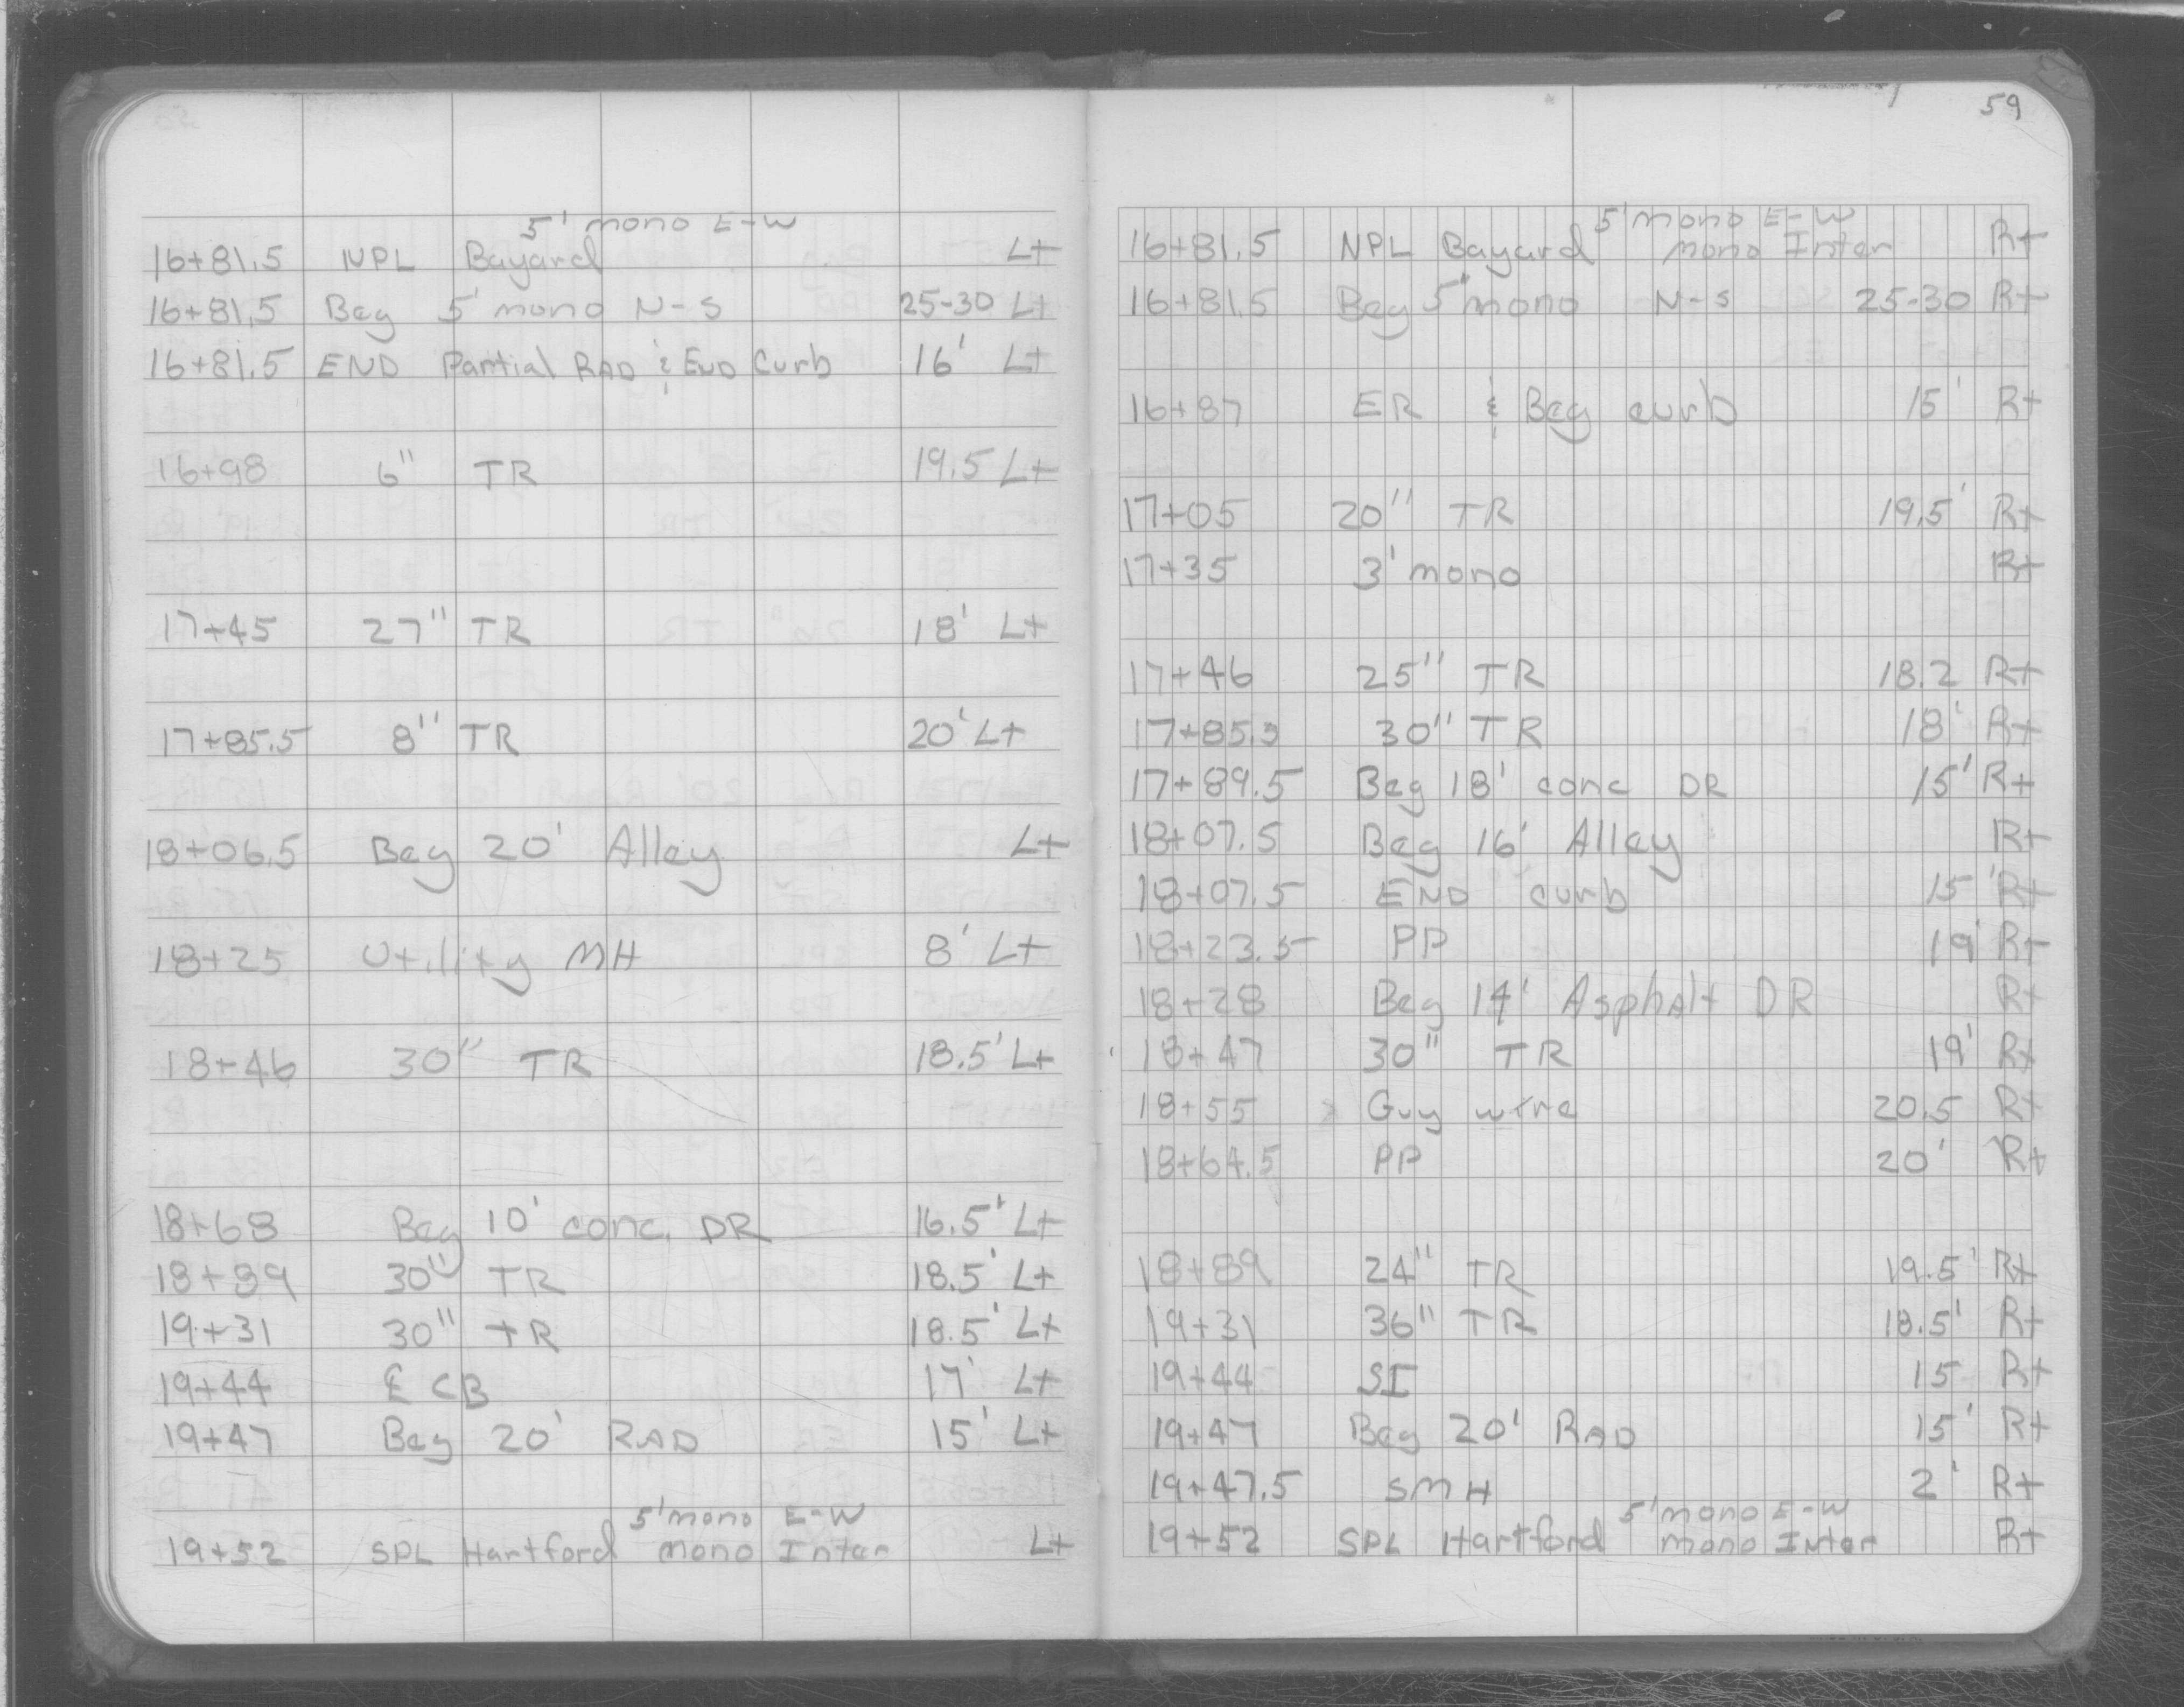 5' mono E-W
16+81.5 NPL Bayard Lt
16+81.5 Beg 5' mono N-S 25-30 Lt
16+81.5 END Partial RAD & END Curb 16' Lt
16+98 6" TR 19.5 Lt
17+45 27" TR 18' Lt
17+85.5 8" TR 20' Lt
18+06.5 Beg 20' Alley Lt
18+25 Utility MH 8' Lt
18+46 30" TR 18.5' Lt
18+68 Beg 10' conc. DR 16.5' Lt
18+89 30" TR 18.5' Lt
19+31 30" TR 18.5' Lt
19+44 CB 17' Lt
19+47 Beg 20' RAD 15' Lt
5' mono E-W
19+52 SPL Hartford mono Inter Lt
59
5' mono E-W
16+81.5 NPL Bayard mono Inter Rt
16+81.5 Beg 5' mono N-S 25-30 Rt
16+87 ER & Beg curb 15' Rt
17+05 20" TR 19.5' Rt
17+35 3' mono Rt
17+46 25" TR 18.2 Rt
17+85.5 30" TR 18' Rt
17+89.5 Beg 18' conc DR 15' Rt
18+07.5 Beg 16' Alley Rt
18+07.5 END curb 15' Rt
18+23.5 PP 19' Rt
18+28 Beg 14' Asphalt DR Rt
18+47 30" TR 19' Rt
18+55 Guy wire 20.5 Rt
18+64.5 PP 20' Rt
18+89 24" TR 19.5' Rt
19+31 36" TR 18.5' Rt
19+44 SI 15 Rt
19+47 Beg 20' RAD 15' Rt
19+47.5 SMH 2' Rt
5' mono E-W
19+52 SPL Hartford mono Inter Rt